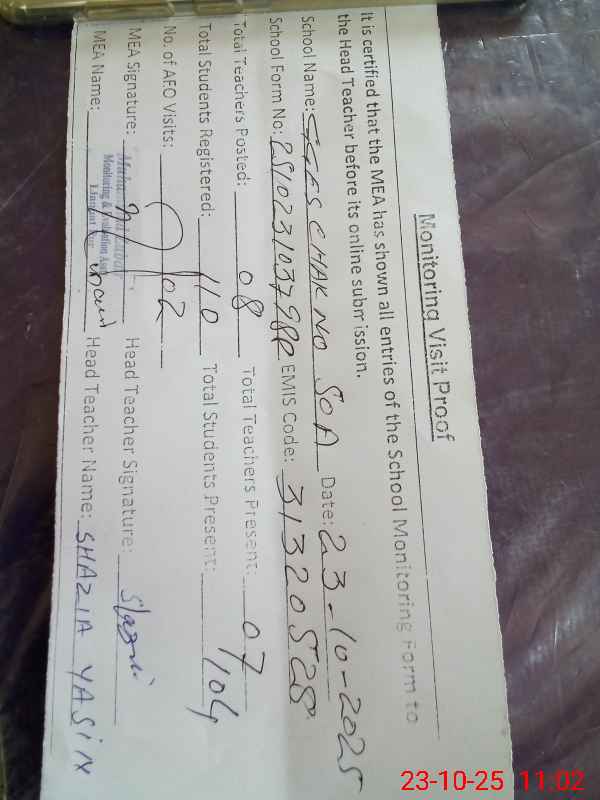 Monitoring Visit Proof
It is certified that the MEA has shown all entries of the School Monitoring Form to
the Head Teacher before its online submission.
School Name: GGES CHAK NO 50 A Date: 23-10-2025
School Form No: EMIS Code: 31320528
Total Teachers Posted: 08 Total Teachers Present: 07
Total Students Registered: 110 Total Students Present: 104
No. of AEO Visits: 02
MEA Signature: Head Teacher Signature:
MEA Name: Head Teacher Name: SHAZIA YASIN
Monitoring & Evaluation
23-10-25 11:02